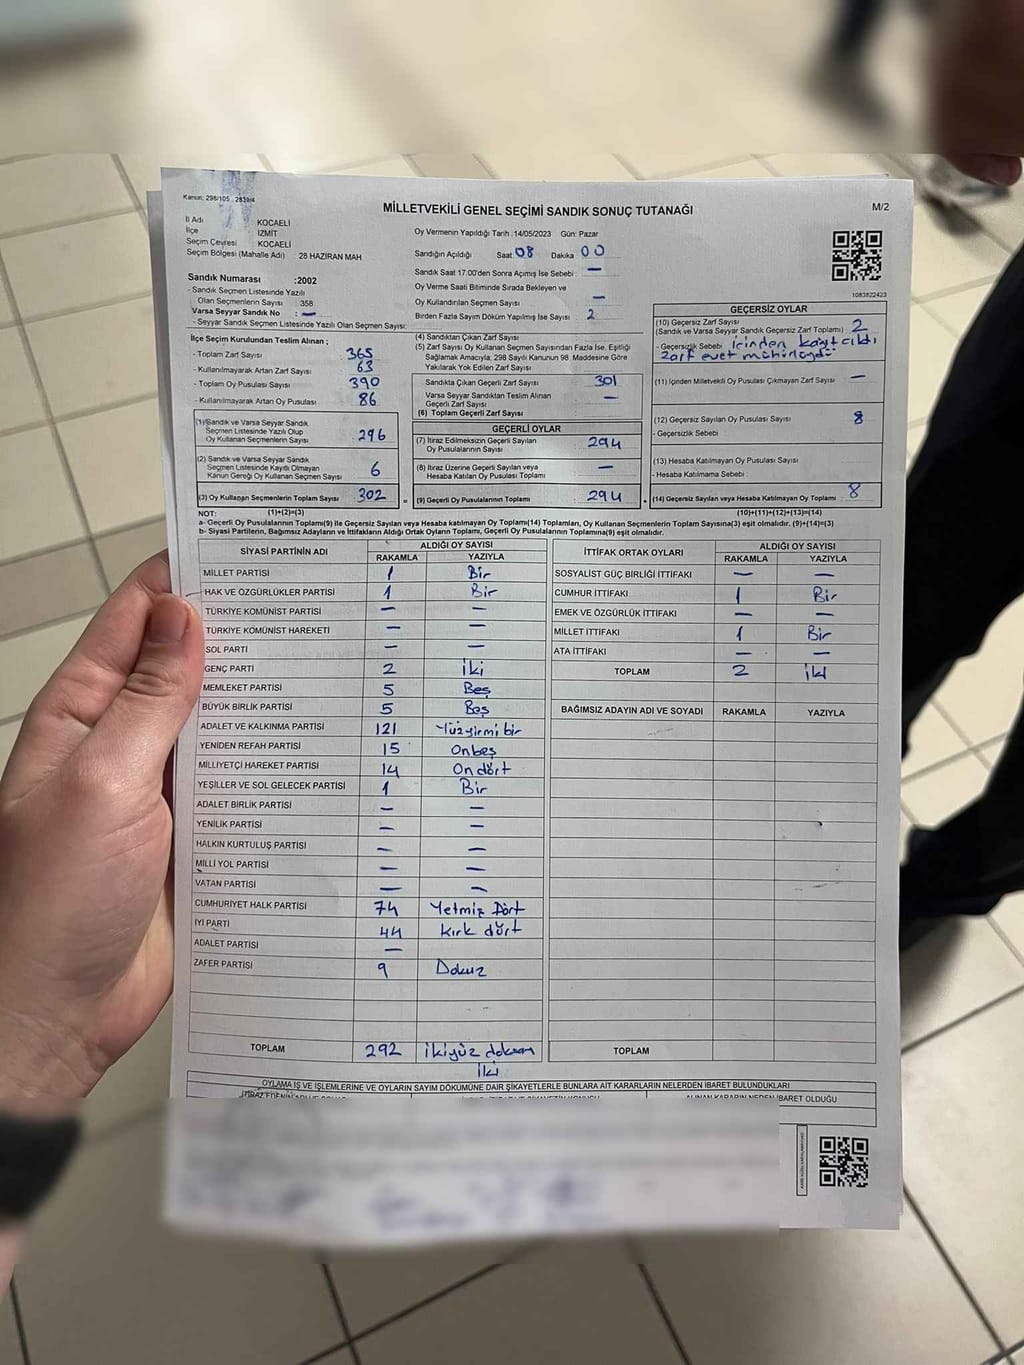 Kanun: 298/105 . 2839/4
MİLLETVEKİLİ GENEL SEÇİMİ SANDIK SONUÇ TUTANAĞI
M/2
İl Adı KOCAELİ
İlçe İZMİT
Seçim Çevresi KOCAELİ
Seçim Bölgesi (Mahalle Adı) 28 HAZİRAN MAH
Oy Vermenin Yapıldığı Tarih :14/05/2023 Gün: Pazar
Sandığın Açıldığı Saat 08 Dakika 00
Sandık Saat 17.00'den Sonra Açılmış İse Sebebi : —
Oy Verme Saati Bitiminde Sırada Bekleyen ve
Oy Kullandırılan Seçmen Sayısı —
Birden Fazla Sayım Döküm Yapılmış İse Sayısı 2
1083822423
Sandık Numarası :2002
- Sandık Seçmen Listesinde Yazılı
Olan Seçmenlerin Sayısı : 358
Varsa Seyyar Sandık No : —
- Seyyar Sandık Seçmen Listesinde Yazılı Olan Seçmen Sayısı:
İlçe Seçim Kurulundan Teslim Alınan ;
- Toplam Zarf Sayısı 365
- Kullanılmayarak Artan Zarf Sayısı 63
- Toplam Oy Pusulası Sayısı 390
- Kullanılmayarak Artan Oy Pusulası 86
(1) Sandık ve Varsa Seyyar Sandık
Seçmen Listesinde Yazılı Olup
Oy Kullanan Seçmenlerin Sayısı 296
(2) Sandık ve Varsa Seyyar Sandık
Seçmen Listesinde Kayıtlı Olmayan
Kanun Gereği Oy Kullanan Seçmen Sayısı 6
(3) Oy Kullanan Seçmenlerin Toplam Sayısı 302
(4) Sandıktan Çıkan Zarf Sayısı
(5) Zarf Sayısı Oy Kullanan Seçmen Sayısından Fazla İse, Eşitliği
Sağlamak Amacıyla; 298 Sayılı Kanunun 98. Maddesine Göre
Yakılarak Yok Edilen Zarf Sayısı
Sandıkta Çıkan Geçerli Zarf Sayısı 301
Varsa Seyyar Sandıktan Teslim Alınan
Geçerli Zarf Sayısı —
(6) Toplam Geçerli Zarf Sayısı
GEÇERLİ OYLAR
(7) İtiraz Edilmeksizin Geçerli Sayılan
Oy Pusulalarının Sayısı 294
(8) İtiraz Üzerine Geçerli Sayılan veya
Hesaba Katılan Oy Pusulası Toplamı —
= (9) Geçerli Oy Pusulalarının Toplamı 294
GEÇERSİZ OYLAR
(10) Geçersiz Zarf Sayısı
(Sandık ve Varsa Seyyar Sandık Geçersiz Zarf Toplamı) 2
- Geçersizlik Sebebi içinden kağıt çıktı
zarf evet mühürlüydü
(11) İçinden Milletvekili Oy Pusulası Çıkmayan Zarf Sayısı —
(12) Geçersiz Sayılan Oy Pusulası Sayısı 8
- Geçersizlik Sebebi :
(13) Hesaba Katılmayan Oy Pusulası Sayısı
- Hesaba Katılmama Sebebi :
+ (14) Geçersiz Sayılan veya Hesaba Katılmayan Oy Toplamı 8
NOT: (1)+(2)=(3)
(10)+(11)+(12)+(13)=(14)
a- Geçerli Oy Pusulalarının Toplamı(9) ile Geçersiz Sayılan veya Hesaba katılmayan Oy Toplamı(14) Toplamları, Oy Kullanan Seçmenlerin Toplam Sayısına(3) eşit olmalıdır. (9)+(14)=(3)
b- Siyasi Partilerin, Bağımsız Adayların ve İttifakların Aldığı Ortak Oyların Toplamı, Geçerli Oy Pusulalarının Toplamına(9) eşit olmalıdır.
SİYASİ PARTİNİN ADI ALDIĞI OY SAYISI
RAKAMLA YAZIYLA
MİLLET PARTİSİ 1 Bir
HAK VE ÖZGÜRLÜKLER PARTİSİ 1 Bir
TÜRKİYE KOMÜNİST PARTİSİ — —
TÜRKİYE KOMÜNİST HAREKETİ — —
SOL PARTİ — —
GENÇ PARTİ 2 iki
MEMLEKET PARTİSİ 5 Beş
BÜYÜK BİRLİK PARTİSİ 5 Beş
ADALET VE KALKINMA PARTİSİ 121 Yüzyirmi bir
YENİDEN REFAH PARTİSİ 15 Onbeş
MİLLİYETÇİ HAREKET PARTİSİ 14 On dört
YEŞİLLER VE SOL GELECEK PARTİSİ 1 Bir
ADALET BİRLİK PARTİSİ — —
YENİLİK PARTİSİ — —
HALKIN KURTULUŞ PARTİSİ — —
MİLLİ YOL PARTİSİ — —
VATAN PARTİSİ — —
CUMHURİYET HALK PARTİSİ 74 Yetmiş Dört
İYİ PARTİ 44 kırk dört
ADALET PARTİSİ —
ZAFER PARTİSİ 9 Dokuz
TOPLAM 292 ikiyüz doksan
iki
İTTİFAK ORTAK OYLARI ALDIĞI OY SAYISI
RAKAMLA YAZIYLA
SOSYALİST GÜÇ BİRLİĞİ İTTİFAKI — —
CUMHUR İTTİFAKI 1 Bir
EMEK VE ÖZGÜRLÜK İTTİFAKI — —
MİLLET İTTİFAKI 1 Bir
ATA İTTİFAKI — —
TOPLAM 2 iki
BAĞIMSIZ ADAYIN ADI VE SOYADI RAKAMLA YAZIYLA
TOPLAM
OYLAMA İŞ VE İŞLEMLERİNE VE OYLARIN SAYIM DÖKÜMÜNE DAİR ŞİKAYETLERLE BUNLARA AİT KARARLARIN NELERDEN İBARET BULUNDUKLARI
ALINAN KARARIN NEDEN İBARET OLDUĞU